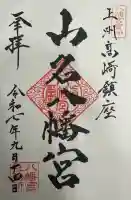 上州高崎鎮座
山名八幡宮
奉拝
令和七年九月十四日